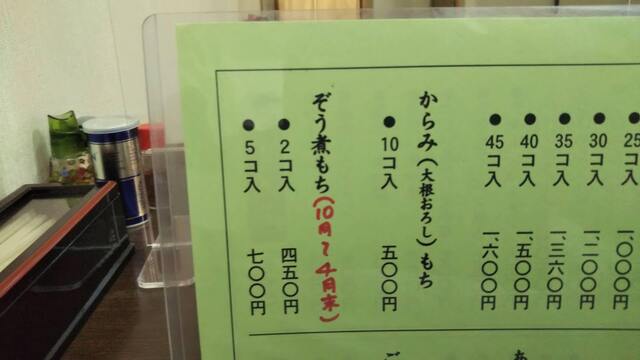 ●25コ入 一、〇〇〇円
●30コ入 一、二〇〇円
●35コ入 一、三六〇円
●40コ入 一、五〇〇円
●45コ入 一、六〇〇円
からみ(大根おろし)もち
●10コ入 五〇〇円
ぞう煮もち(10月~4月末)
●2コ入 四五〇円
●5コ入 七〇〇円
あ
ご